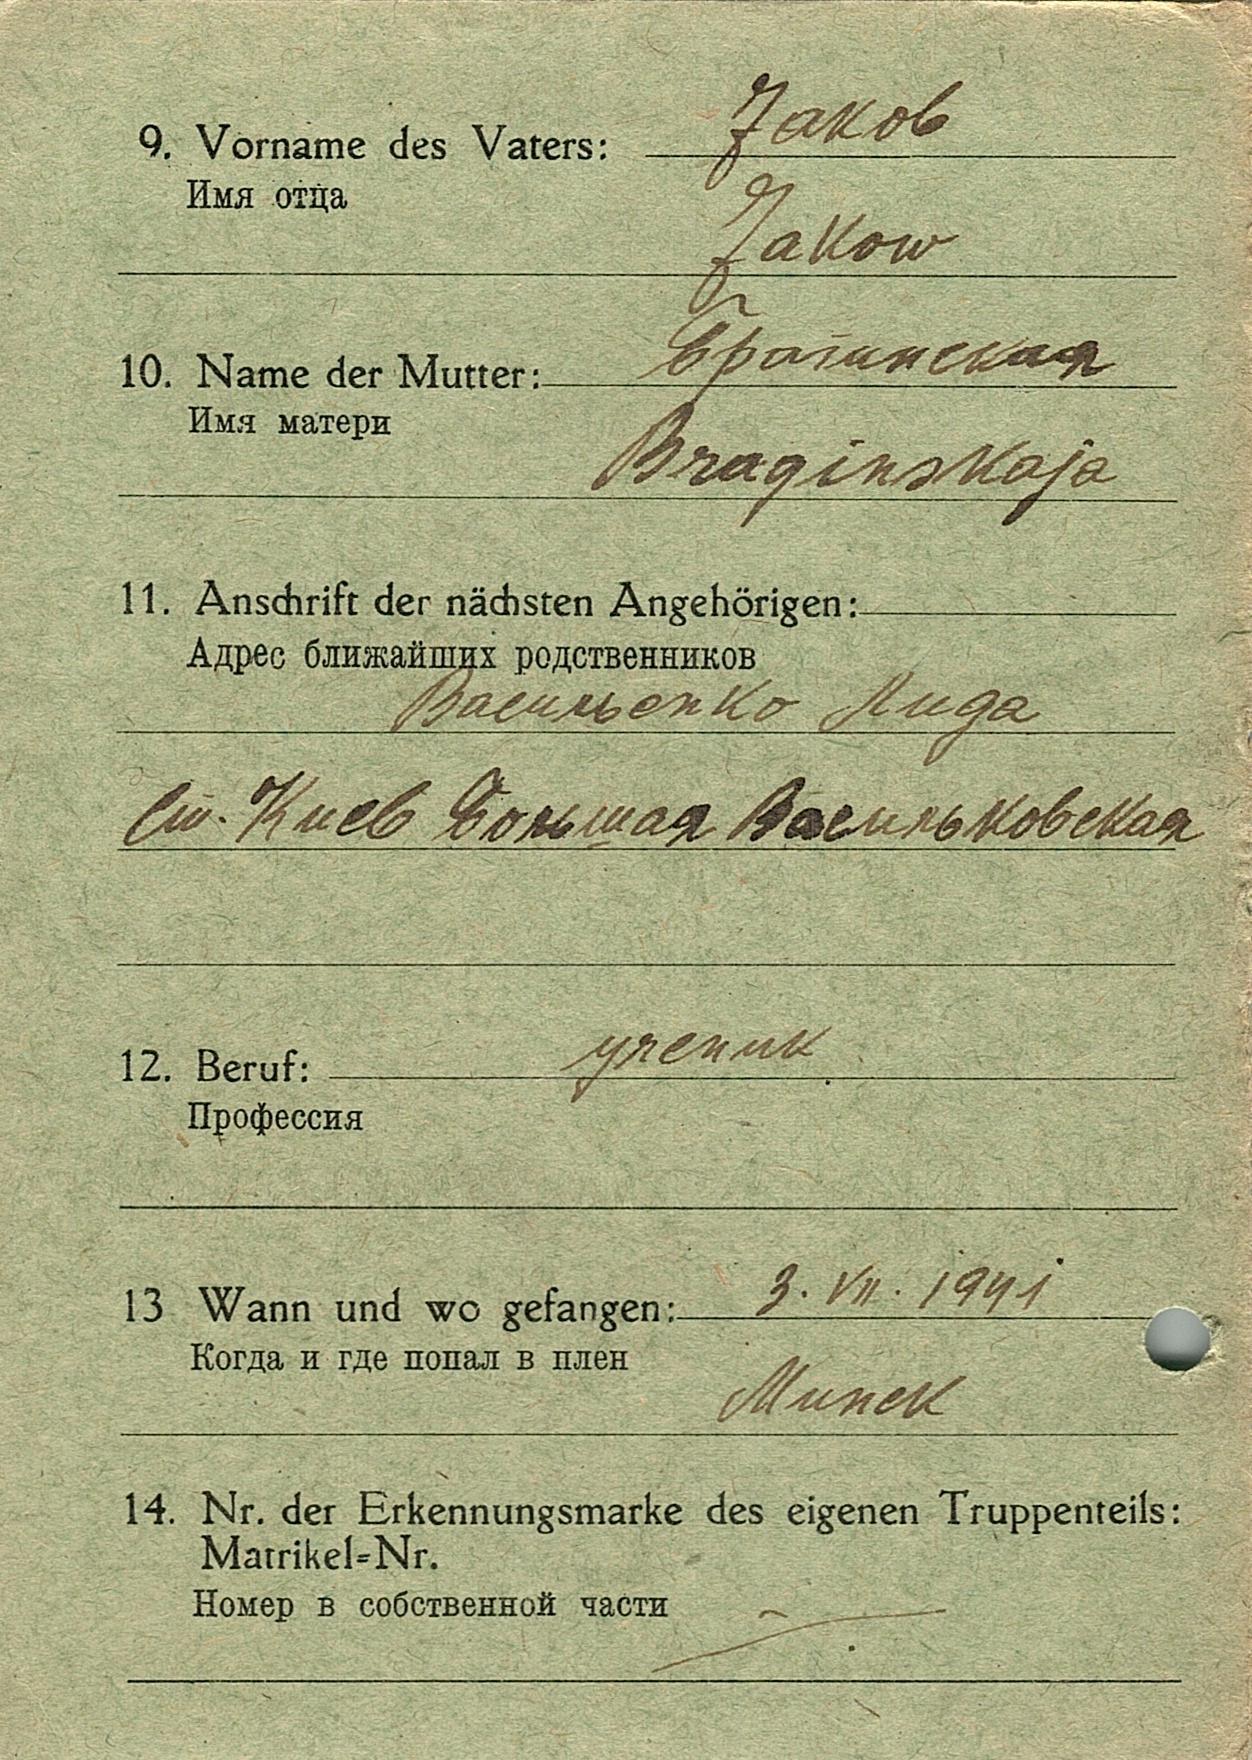 9. Vorname des Vaters: Jаков
Имя отца
Jakow
10. Name der Mutter: Брагинская
Имя матери
Braginskaja
11. Anschrift der nächsten Angehörigen:
Адрес ближайших родственников
Васильенко Лида
ст. Киев Большая Васильковская
12. Beruf: ученик
Профессия
13 Wann und wo gefangen: 3. VII. 1941
Когда и где попал в плен
Минск
14. Nr. der Erkennungsmarke des eigenen Truppenteils:
Matrikel=Nr.
Номер в собственной части